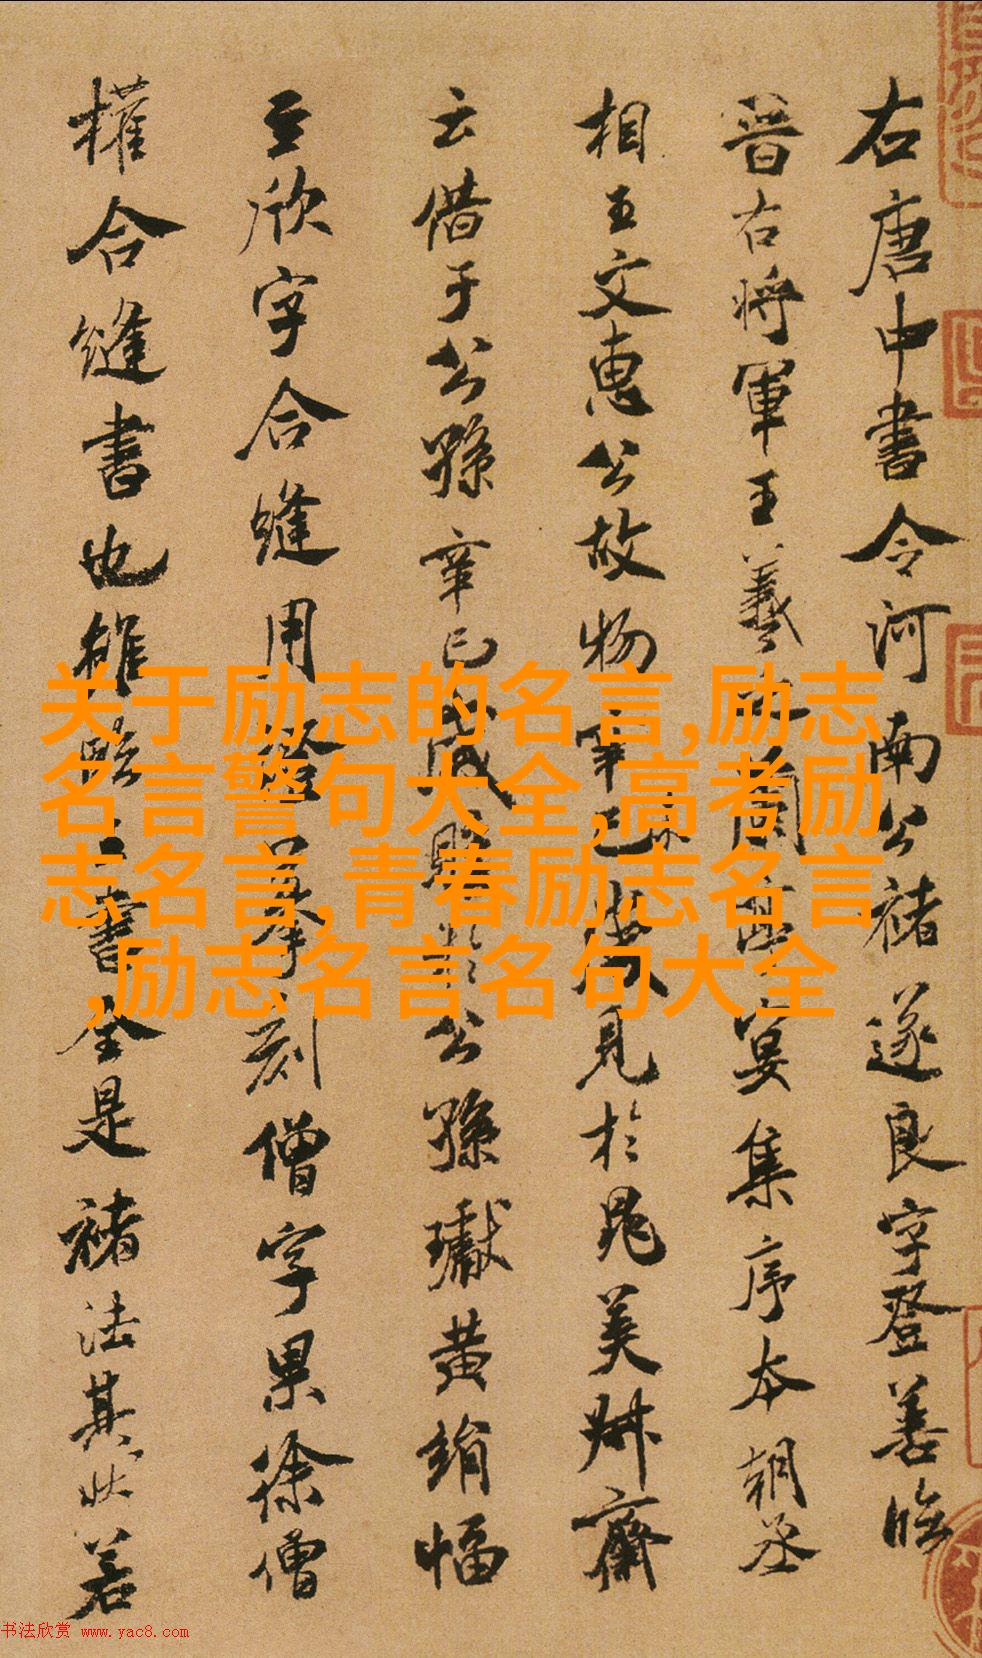 右唐中書令河南公褚遂良字登善臨
晉右將軍王羲之蘭亭宴集序本朝丞
相王文惠公故物辛巳歲見於晁美叔齋
云借于公孫辛巳歲購於公孫瓛黃絹幅
至欣字合縫用證摹刻僧字果徐僧
權合縫書也雖臨王書全是褚法其狀若
关于励志的名言,励志
名言警句大全,高考励
志名言,青春励志名言
,励志名言名句大全
书法欣赏 www.yac8.com